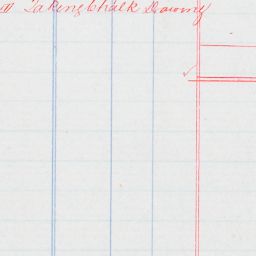 " Taking Chalk Drawing